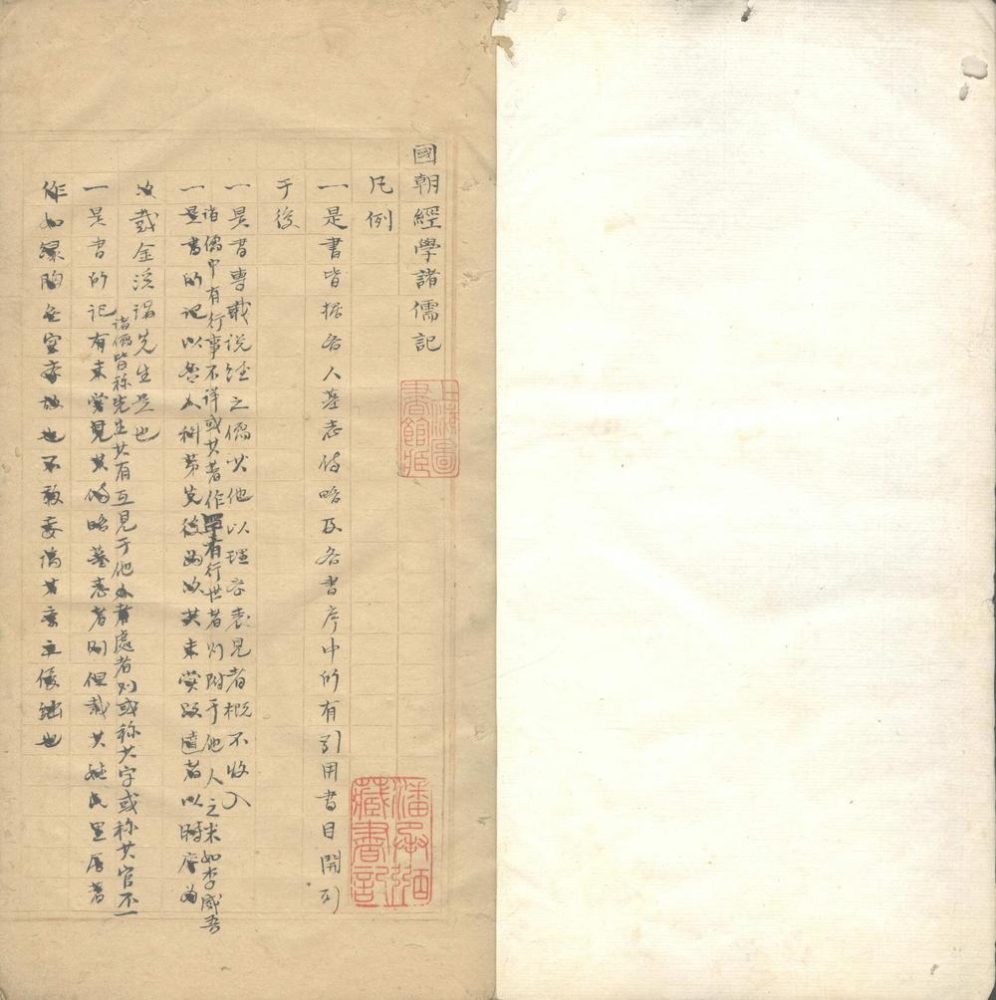 國朝經學諸儒記
凡例
一是書皆據各人墓志傳略及各書序中所有引用書目開列
于後
一是書專載說經之儒其他以理學表見者概不收入
諸儒中有行事不詳或其著作罕有行世者則附于他人之末如李咸
一是書所記以各人科第先後為次其未嘗
次載金 先生是也
諸儒皆稱先生其有互見于他處者則或稱其字或稱其官不一
一是書所記有未嘗見其傳略墓志者則但載其姓氏里居著
作如 空 也不敢妄
上海圖書館藏
潘承弼藏書記